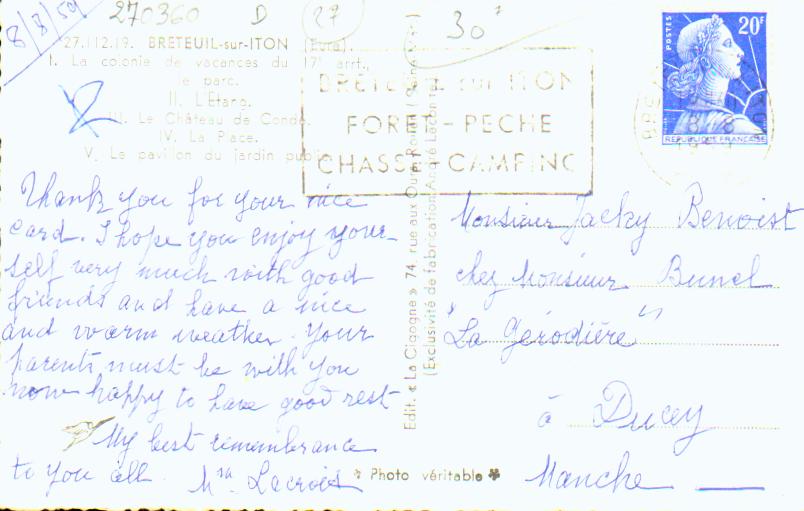 8/8/59
270360 D 27
30F
27.112.19. BRETEUIL-sur-ITON (Eure).
I. La colonie de vacances du 17e arrt.,
le parc.
II. L'Etang.
III. Le Château de Condé.
IV. La Place.
V. Le pavillon du jardin public.
BRETEUIL-sur-ITON
FORET-PECHE
CHASSE-CAMPING
POSTES
20F
REPUBLIQUE FRANÇAISE
Thank you for your nice
card. I hope you enjoy your
self very much with good
friends and have a nice
and warm weather. Your
parents must be with you
now happy to have good rest
My best remembrance
to you all. Mrs Lacroix
Edit. « La Cigogne » 74, rue aux Ours, Rouen
(Exclusivité de fabrication André Leconte)
Photo véritable
Monsieur Jacky Benoist
chez Monsieur Bunel
"La Gérodière"
à Ducey
Manche